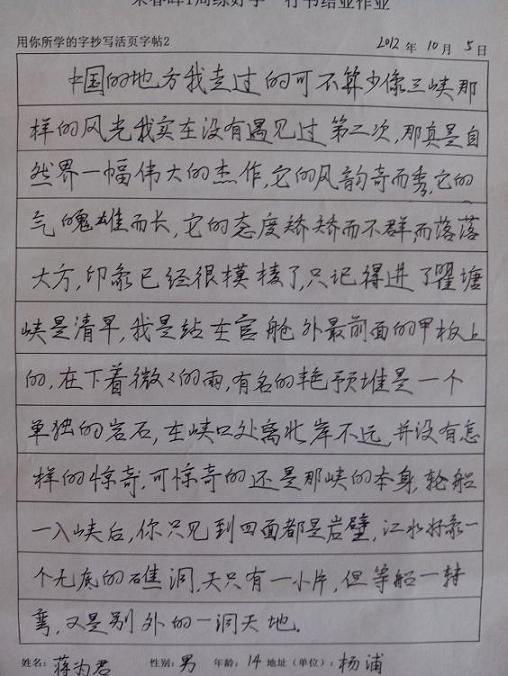 行书结业作业
用你所学的字抄写活页字帖2 2012年10月5日
中国的地方我走过的可不算少像三峡那
样的风光我实在没有遇见过第二次,那真是自
然界一幅伟大的杰作,它的风韵奇而秀,它的
气魄雄而长,它的态度矫矫而不群,而落落
大方,印象已经很模棱了,只记得进了瞿塘
峡是清早,我是站在官舱外最前面的甲板上
的,在下着微々的雨,有名的艳预堆是一个
单独的岩石,在峡口处离北岸不远,并没有怎
样的惊奇,可惊奇的还是那峡的本身,轮船
一入峡后,你只见到四面都是岩壁,江水好象一
个无底的礁洞,天只有一小片,但等船一转
弯,又是别外的一洞天地.
姓名:蒋为君 性别:男 年龄:14 地址(单位):杨浦